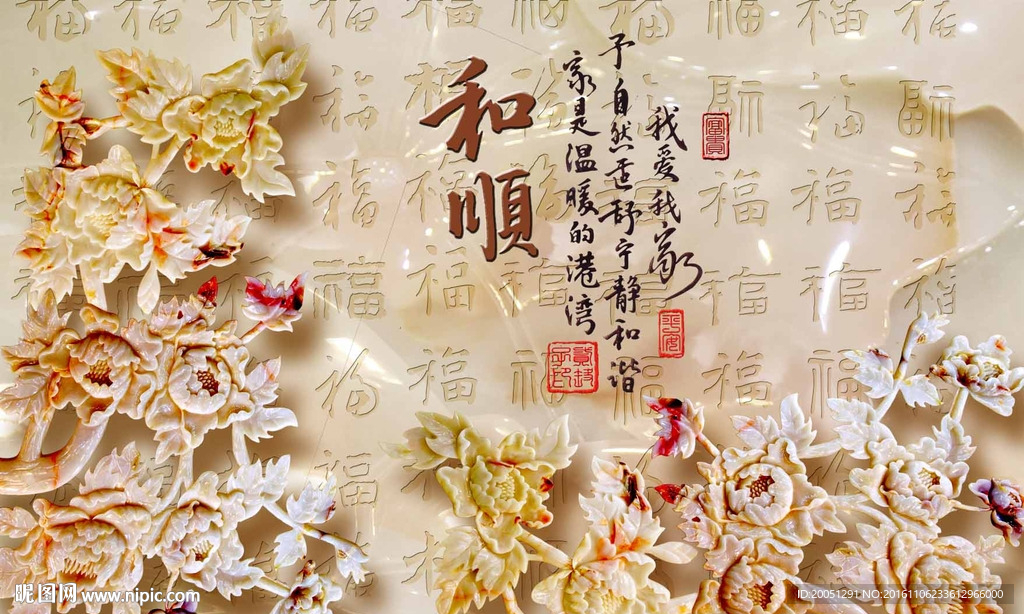 和順
我爱我家
予自然 舒宁静和谐
家是温暖的港湾
富貴
平安
福 福 福 福 福 福 福 福 福
昵图网 www.nipic.com
ID:20051291 NO:20161106233612965000